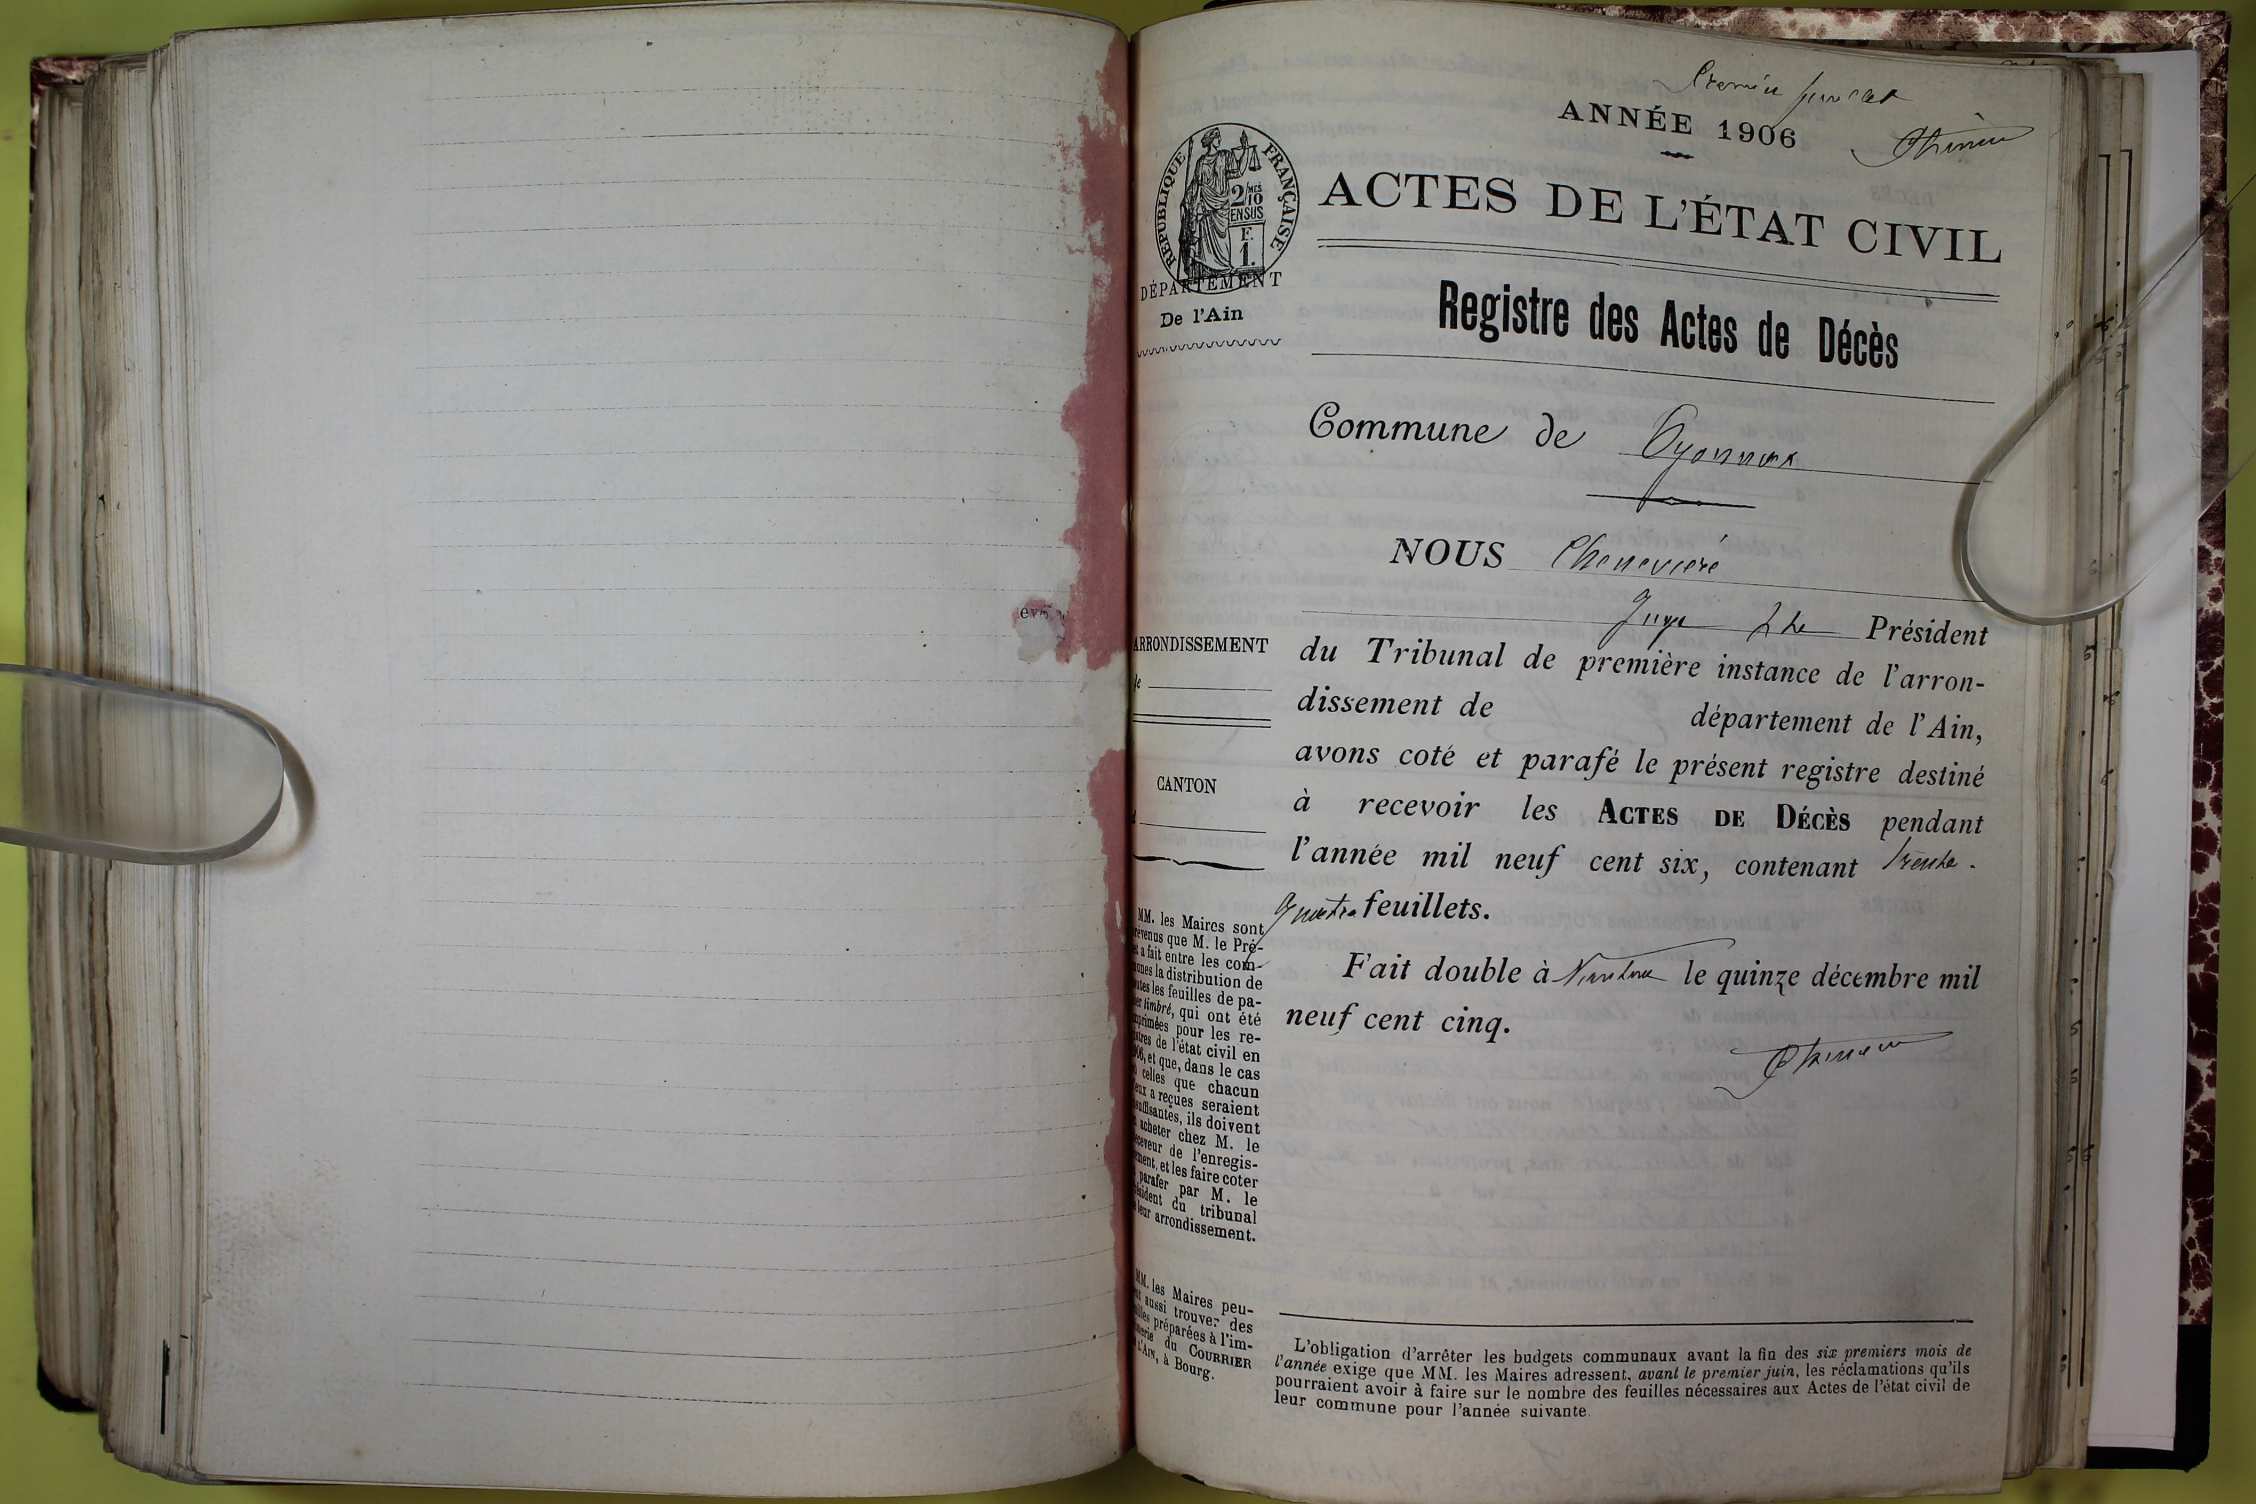 Premier feuillet
ANNÉE 1906
RÉPUBLIQUE FRANÇAISE
2/10 MES
EN SUS
F.
1.
DÉPARTEMENT
De l'Ain
ACTES DE L'ÉTAT CIVIL
Registre des Actes de Décès
Commune de Oyonnax
NOUS Chenevière
Juge Président
ARRONDISSEMENT
du Tribunal de première instance de l'arron-
dissement de département de l'Ain,
avons coté et parafé le présent registre destiné
CANTON
à recevoir les ACTES DE DÉCÈS pendant
l'année mil neuf cent six, contenant trente-
quatre feuillets.
Fait double à Nantua le quinze décembre mil
neuf cent cinq.
MM. les Maires sont
que M. le Pré-
a fait entre les com-
la distribution de
les feuilles de pa-
timbré, qui ont été
pour les re-
de l'état civil en
et que, dans le cas
celles que chacun
a reçues seraient
ils doivent
acheter chez M. le
de l'enregis-
et les faire coter
parafer par M. le
du tribunal
leur arrondissement.
MM. les Maires peu-
aussi trouver des
préparées à l'im-
du COURRIER
à Bourg.
L'obligation d'arrêter les budgets communaux avant la fin des six premiers mois de
l'année exige que MM. les Maires adressent, avant le premier juin, les réclamations qu'ils
pourraient avoir à faire sur le nombre des feuilles nécessaires aux Actes de l'état civil de
leur commune pour l'année suivante.